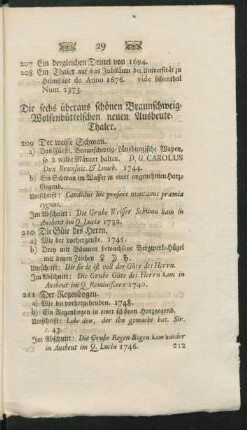 29
207 Ein dergleichen Drittel von 1694.
208 Ein Thaler auf das Jubilæum der Universität zu
Helmstädt de Anno 1676. vide Lilienthal
Num. 2373.
Die sechs überaus schönen Braunschweig-
Wolfenbüttelschen neuen Ausbeute-
Thaler.
209 Der weisse Schwan.
a) Das Fürstl. Braunschweig-Lüneburgische Wapen,
so 2 wilde Männer halten. D. G. CAROLUS
Dux Brunsvic. & Luneb. 1744.
b) Ein Schwan im Wasser in einer angenehmen Hartz-
Gegend.
Umschrift: Candidus hic profert montanus præmia
cygnus.
Im Abschnitt: Die Grube Weisser Schwan kam in
Ausbeut im Q. Lucia 1732.
210 Die Güte des Herrn.
a) Wie der vorhergehende. 1745.
b) Drey mit Bäumen bewachsene Bergwerk-Hügel
mit denen Zeichen ♀ ♃ ♄.
Umschrift: Die Erde ist voll der Güte des Herrn.
Im Abschnitt: Die Grube Güte des Herrn kam in
Ausbeut im Q. Reminiscere 1740.
211 Der Regenbogen.
a) Wie die vorhergehenden. 1748.
b) Ein Regenbogen in einer schönen Hartzgegend.
Umschrift: Lobe den, der ihn gemacht hat. Sir.
c. 43.
Im Abschnitt: Die Grube Regen-Bogen kam wieder
in Ausbeut im Q. Lucia 1746.
212